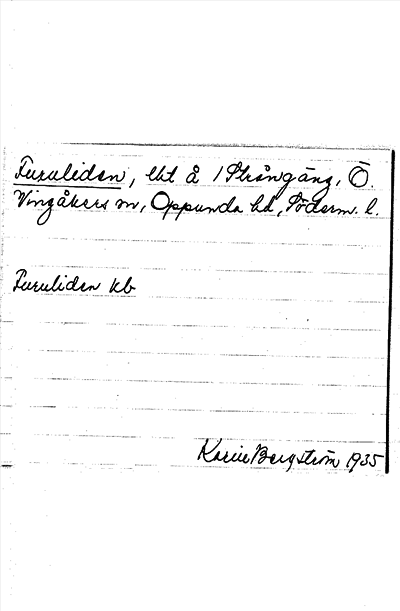 Furuliden, lht å 1 Strångäng, Ö.
Vingåkers sn, Oppunda hd, Söderm. l.
Furuliden kb
Karin Bergström 1935